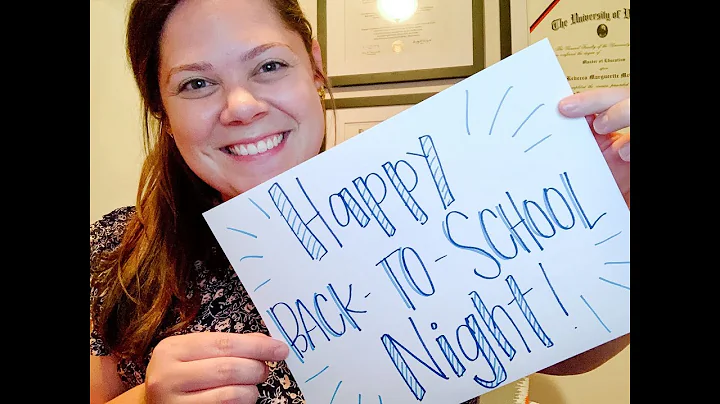 Happy
BACK-TO-SCHOOL
Night!
The University of
Master of Education
Marguerite